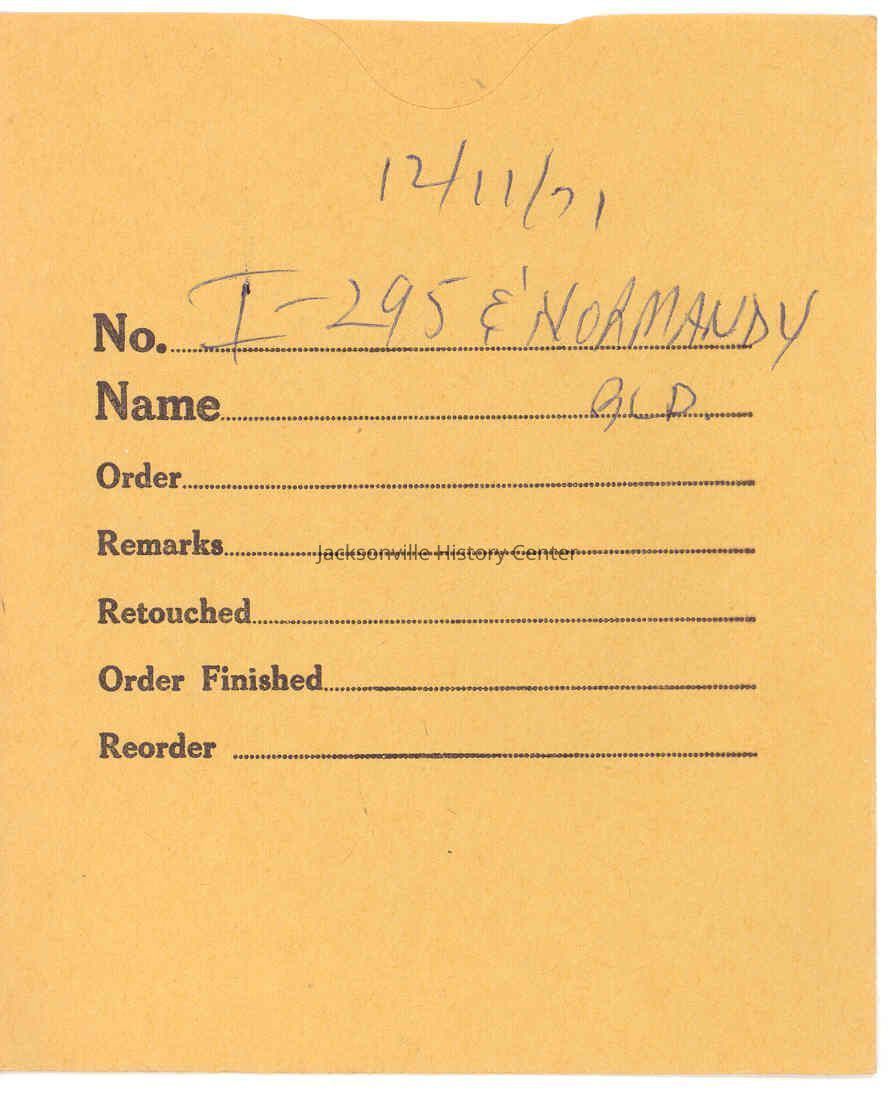 12/11/71
No. I-295 & NORMANDY
Name BLD.
Order
Remarks
Jacksonville History Center
Retouched
Order Finished
Reorder